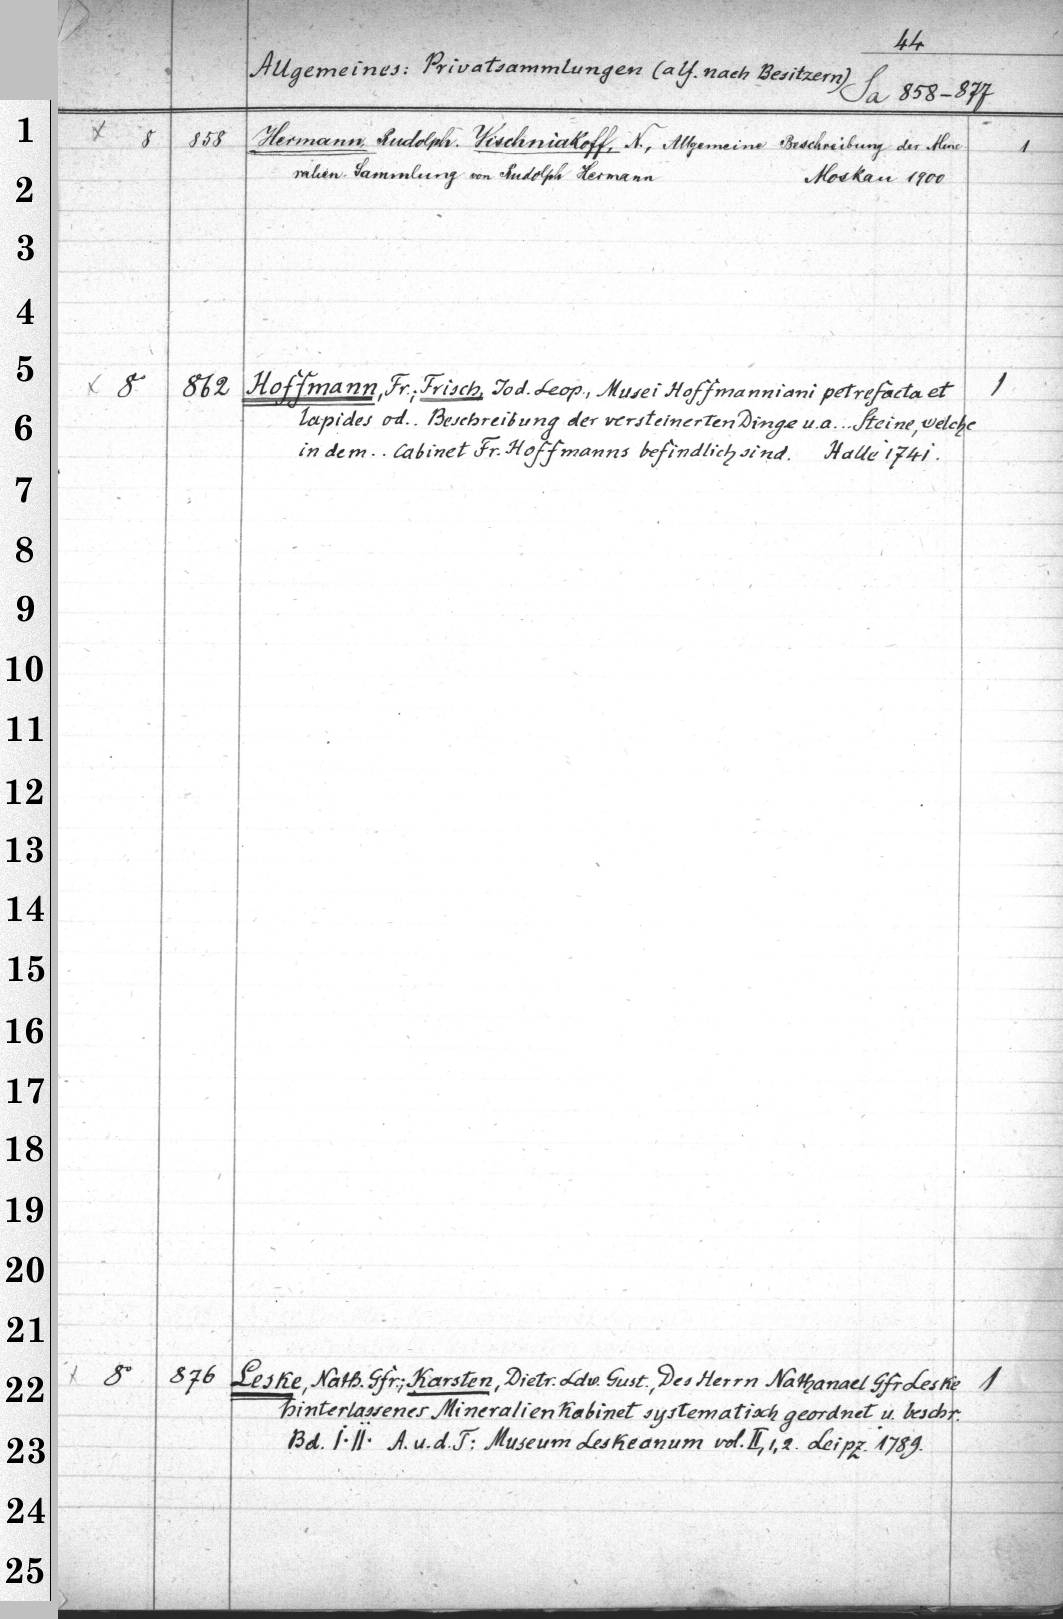 44
Allgemeines: Privatsammlungen (alf. nach Besitzern) Sa 858-877
1 x 8 858 Hermann, Rudolph. Wischniakoff, N., Allgemeine Beschreibung der Mine 1
2 ralien-Sammlung von Rudolph Hermann Moskau 1900
3
4
5 x 8° 862 Hoffmann, Fr.; Frisch, Jod. Leop., Musei Hoffmanniani petrefacta et 1
6 lapides od.. Beschreibung der versteinerten Dinge u.a... Steine, welche
in dem.. Cabinet Fr. Hoffmanns befindlich sind. Halle 1741.
7
8
9
10
11
12
13
14
15
16
17
18
19
20
21
22 x 8° 876 Leske, Nath. Gfr.; Karsten, Dietr. Ldw. Gust., Des Herrn Nathanael Gfr Leske 1
hinterlassenes Mineralienkabinet systematisch geordnet u. beschr.
23 Bd. I.II. A.u.d.T: Museum Leskeanum vol. II,1,2. Leipz. 1789.
24
25